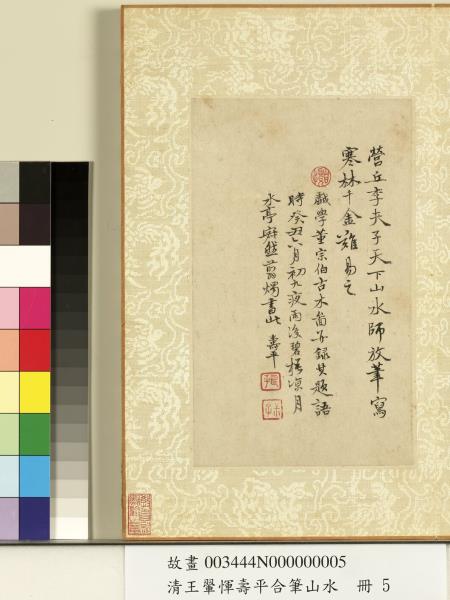 營丘李夫子天下山水師放筆寫
寒林千金難易之
戲學董宗伯古木圖并錄其題語
時癸丑六月初九夜雨後碧梧凉月
水亭然翦燭書此 壽平
故畫 003444N000000005
清王翬惲壽平合筆山水 冊 5